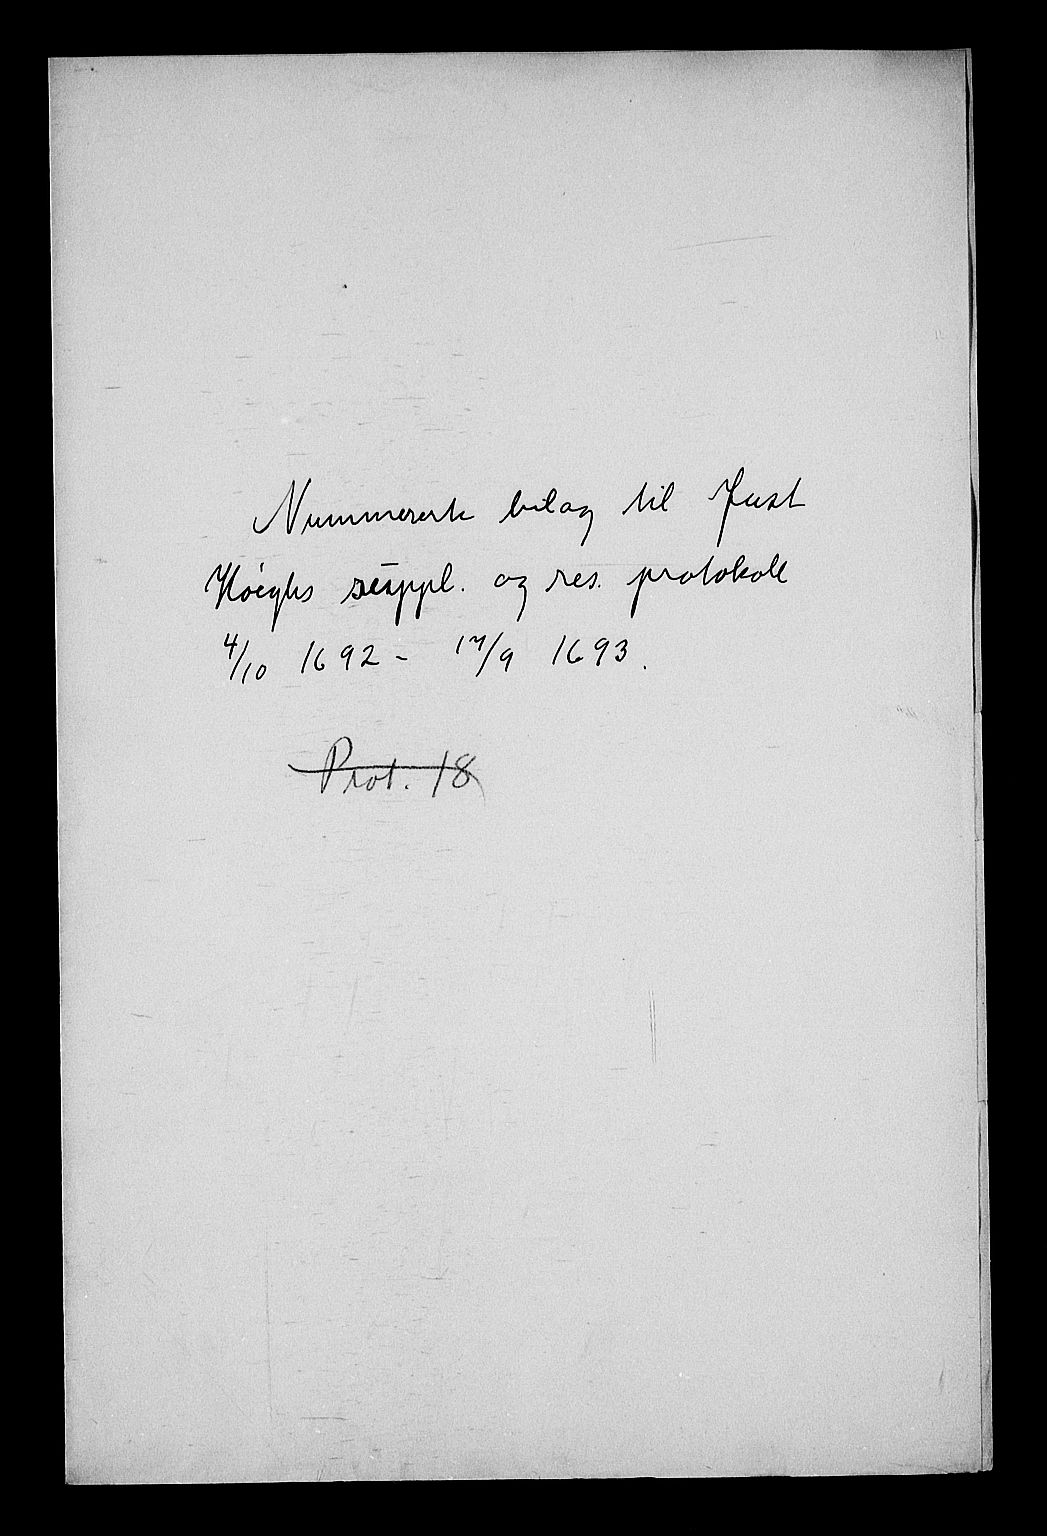 Nummererte bilag til Just
Høeghs suppl. og res. protokoll
4/10 1692 - 17/9 1693.
Prot. 18